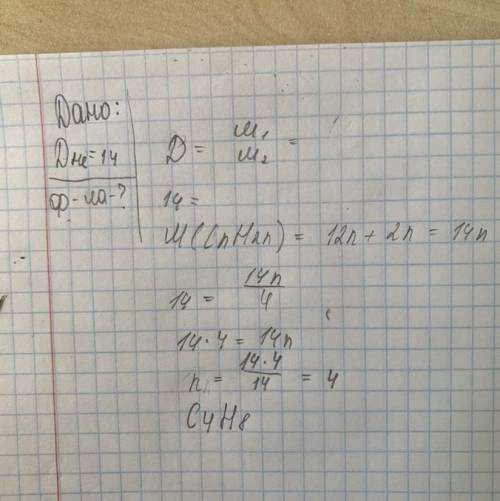 Дано:
Dне = 14
ф-ла-?
D = M₁/M₂ =
14 =
M(CnH2n) = 12n + 2n = 14n
14 = 14n/4
14·4 = 14n
n = 14·4/14 = 4
C4H8